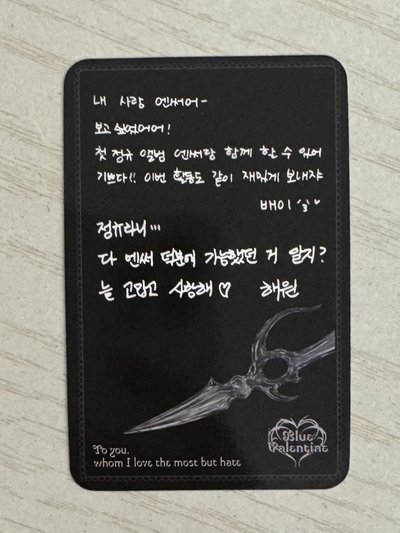 내 사랑 엔써어~
보고싶었어어!
첫 정규 앨범 엔써랑 함께 할 수 있어
기쁘다!! 이번 활동도 같이 재밌게 보내쟈
배이'3'♥
정규라니…
다 엔써 덕분에 가능했던 거 알지?
늘 고맙고 사랑해♡ 해원
To you,
whom I love the most but hate
Blue
Valentine